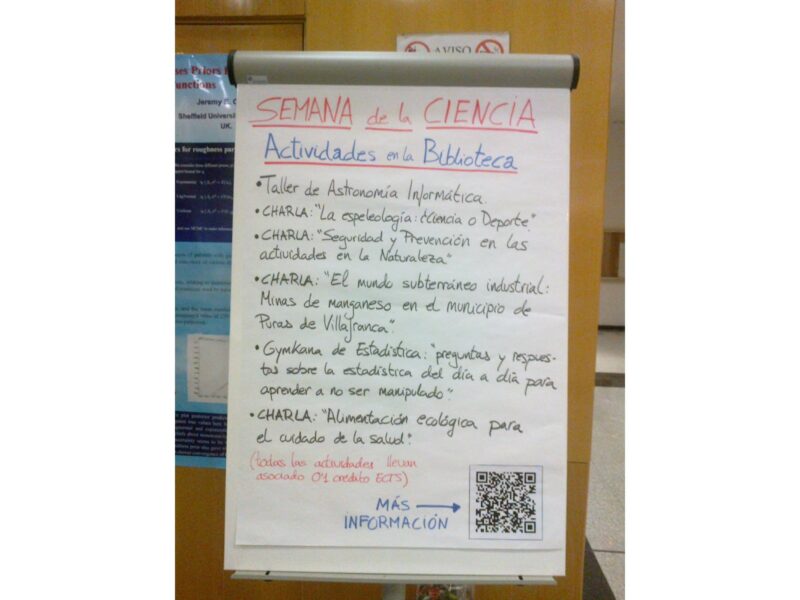 AVISO
ses Priors
unctions
Jeremy
Sheffield Universi
UK.
rs for roughness par
SEMANA de la CIENCIA
Actividades en la Biblioteca
• Taller de Astronomía Informática.
• CHARLA: "La espeleología: ¿Ciencia o Deporte"
• CHARLA: "Seguridad y Prevención en las
actividades en la Naturaleza"
• CHARLA: "El mundo subterráneo industrial:
Minas de manganeso en el municipio de
Puras de Villafranca".
• Gymkana de Estadística: "preguntas y respues-
tas sobre la estadística del día a día para
aprender a no ser manipulado".
• CHARLA: "Alimentación ecológica para
el cuidado de la salud".
(todas las actividades llevan
asociado 0'1 crédito ECTS)
MÁS
INFORMACIÓN